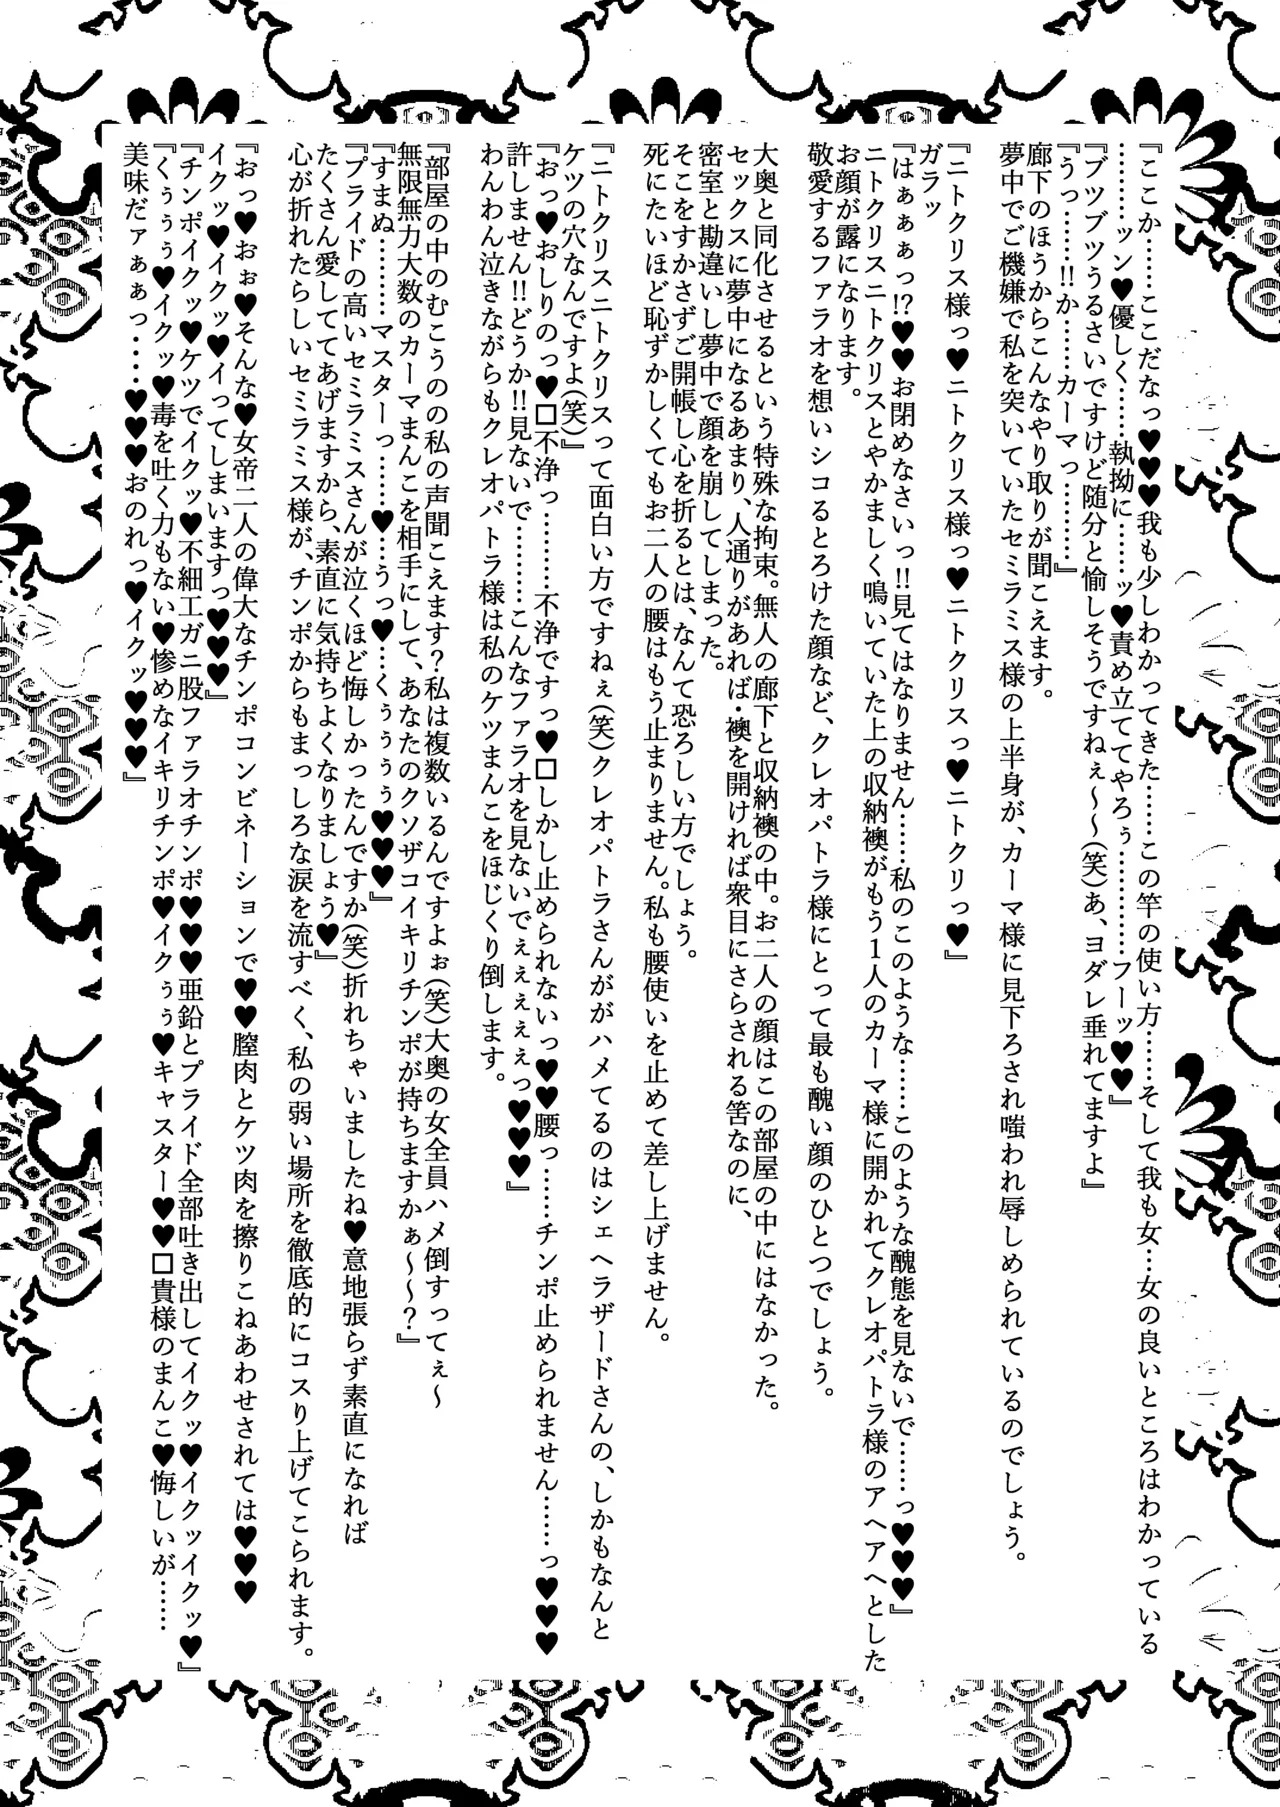 『ここか……ここだなっ♥♥♥我も少しわかってきた……この竿の使い方……そして我も女…女の良いところはわかっている
………ッン♥優しく……執拗に……ッ♥責め立ててやろぅ…………フーッ♥♥』
『ブツブツうるさいですけど随分と愉しそうですねぇ～～(笑)あ、ヨダレ垂れてますよ』
『うっ……!!か……カーマっ………』
廊下のほうからこんなやり取りが聞こえます。
夢中でご機嫌で私を突いていたセミラミス様の上半身が、カーマ様に見下ろされ嗤われ辱しめられているのでしょう。
『ニトクリス様っ♥ニトクリス様っ♥ニトクリスっ♥ニトクリっ♥』
ガラッ
『はぁぁぁっ!?♥♥お閉めなさいっ!!見てはなりません……私のこのような……このような醜態を見ないで……っ♥♥♥』
ニトクリスニトクリスとやかましく鳴いていた上の収納襖がもう1人のカーマ様に開かれてクレオパトラ様のアヘアヘとした
お顔が露になります。
敬愛するファラオを想いシコるとろけた顔など、クレオパトラ様にとって最も醜い顔のひとつでしょう。
大奥と同化させるという特殊な拘束。無人の廊下と収納襖の中。お二人の顔はこの部屋の中にはなかった。
セックスに夢中になるあまり、人通りがあれば・襖を開ければ衆目にさらされる筈なのに、
密室と勘違いし夢中で顔を崩してしまった。
そこをすかさずご開帳し心を折るとは、なんて恐ろしい方でしょう。
死にたいほど恥ずかしくてもお二人の腰はもう止まりません。私も腰使いを止めて差し上げません。
『ニトクリスニトクリスって面白い方ですねぇ(笑)クレオパトラさんがハメてるのはシェヘラザードさんの、しかもなんと
ケツの穴なんですよ(笑)』
『おっ♥おしりのっ♥□不浄っ………不浄ですっ♥□しかし止められないっ♥♥腰っ……チンポ止められません……っ♥♥♥
許しません!!どうか!!見ないで………こんなファラオを見ないでぇぇぇぇっ♥♥♥』
わんわん泣きながらもクレオパトラ様は私のケツまんこをほじくり倒します。
『部屋の中のむこうのの私の声聞こえます?私は複数いるんですよぉ(笑)大奥の女全員ハメ倒すってぇ～
無限無力大数のカーマまんこを相手にして、あなたのクソザコイキリチンポが持ちますかぁ～～?』
『すまぬ………マスターっ……♥…うっ♥…くぅぅぅぅ♥♥♥』
『プライドの高いセミラミスさんが泣くほど悔しかったんですか(笑)折れちゃいましたね♥意地張らず素直になれば
たくさん愛しててあげますから、素直に気持ちよくなりましょう♥』
心が折れたらしいセミラミス様が、チンポからもまっしろな涙を流すべく、私の弱い場所を徹底的にコスり上げてこられます。
『おっ♥おぉ♥そんな♥女帝二人の偉大なチンポコンビネーションで♥♥膣肉とケツ肉を擦りこねあわせされては♥♥♥
イクッ♥イクッ♥イってしまいますっ♥♥♥』
『チンポイクッ♥ケツでイクッ♥不細工ガニ股ファラオチンポ♥♥♥亜鉛とプライド全部吐き出してイクッ♥イクッイクッ♥』
『くぅぅぅ♥イクッ♥毒を吐く力もない♥惨めなイキリチンポ♥イクぅぅ♥キャスター♥♥□貴様のまんこ♥悔しいが……
美味だァぁぁっ……♥♥♥おのれっ♥イクッ♥♥♥』